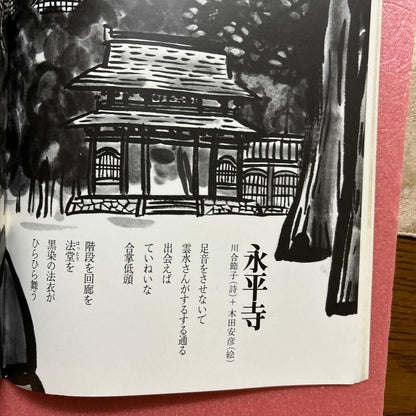 永平寺
川合節子(詩)+木田安彦(絵)
足音をさせないで
雲水さんがするする通る
出会えば
ていねいな
合掌低頭
階段を回廊を
法堂を
はっとう
黒染の法衣が
ひらひら舞う